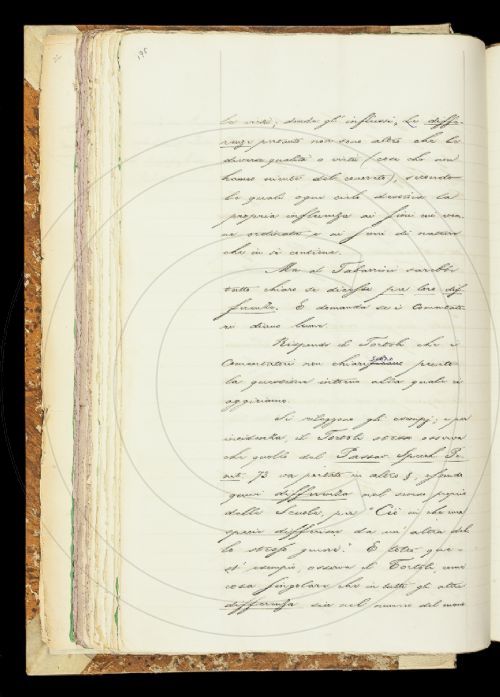 195
le virtù; donde gl'influssi. Le diffe-
renze pertanto non sono altro che le
diverse qualità o virtù (cose che non
hanno niente del concreto), secondo
le quali ogni cielo dirizza la
propria influenza ai fini cui vie-
ne ordinata e ai semi di natura
che in sè contiene.
Ma al Tabarrini sarebbe
tutto chiaro se dicesse per lor dif-
ferenti. E domanda se i Comentato-
ri diano lume.
Risponde il Tortoli che i
Comentatori non chiariscono
la questione intorno alla quale ci
aggiriamo.
Si rileggono gli esempj; e per
incidenza, il Tortoli stesso osserva
che quello del Passav. Specch. Pe-
nit. 73 va portato in altro §, essendo
quivi differenza nel senso proprio
delle Scuole, per "Ciò in che una
specie differisce da un'altra del-
lo stesso genere." E letti que-
st'esempio, osserva il Tortoli come
cosa singolare che in tutti gli altri
differenza sia nel numero del